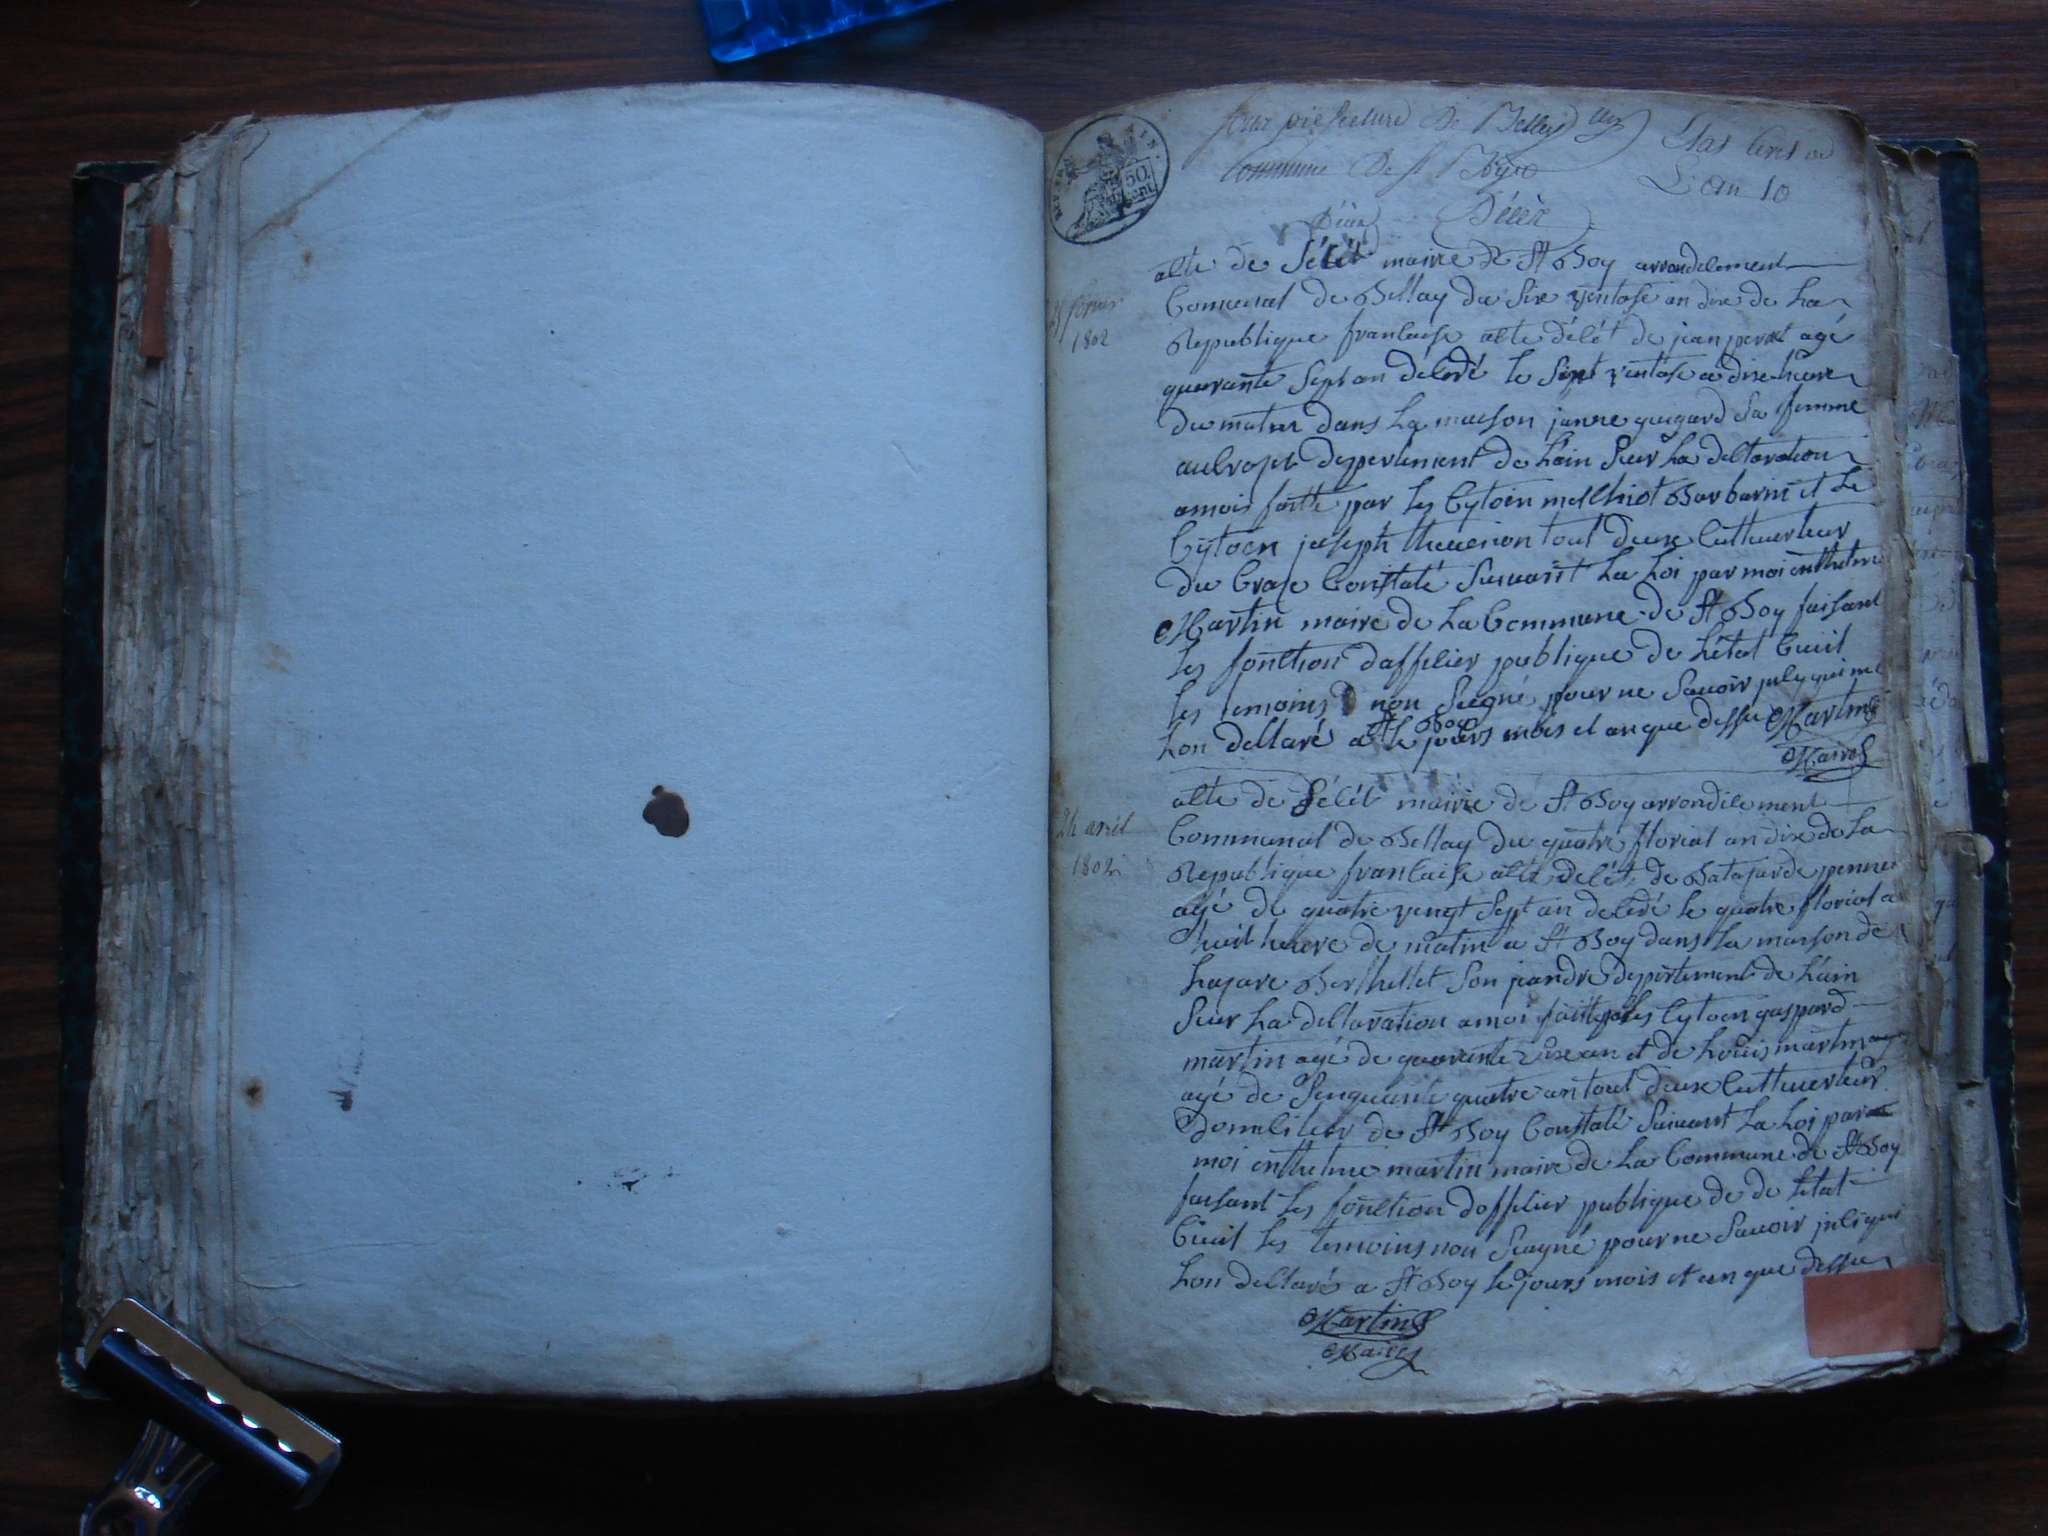 Sous préfecture De Belley
Commune De st Bois
Etat Civil
L'an 10
50.
cent
Décès
Décès
alte de délét mairie de St Boy arrondelement
25 février
1802
Communal de Bellay du Sixe ventose an dixe de La
Republique franlaise alte délét de jean peret agé
quarante Sept an deledé le Sixt ventose a dix heure
du matin dans La maison janne guigard Sa femme
au Crose departement de Lain Sur La dellaration
a moi faitte par Les Cytoien mellhiot Barbarin et Le
Cytoen joseph theuenon tout deux Cultuerteur
du Crose Constaté Suivant La Loi par moi enthelme
Martin maire de La Commune de St Boy faisant
Les fonltion daffilier publique de Létat Ciuil
Les temoins non Seigné pour ne Sauoir
Lon dellaré a St Boy Le jours mois et an que dessu Martin
Maire
alte de délét mairie de St Boy arrondilement
24 avril
1802
Communal de Bellay du quatre florial an dixe de La
Republique franlaise alte delét de
agé de quatre vengt Sept an deledé le quatre florial a
huit heure de matin a St Boy dans La maison de
Lazare Berthellet Son jeandre departement de Lain
Seur La dellaration a moi faitte Les Cytoen gaspard
martin agé de quarante an et de Louis martin
agé de Senquante quatre an tout deux Cultuerteur
domelilier de St Boy Constaté Suiuant La Loi par
moi enthelme martin maire de La Commune de St Boy
faisant Les fonltion dofficier publique de de Létat
Ciuil Les temoins non Seagné pour ne Sauoir
Lon dellaré a St Boy Le jours mois et an que dessu
Martin
Maire